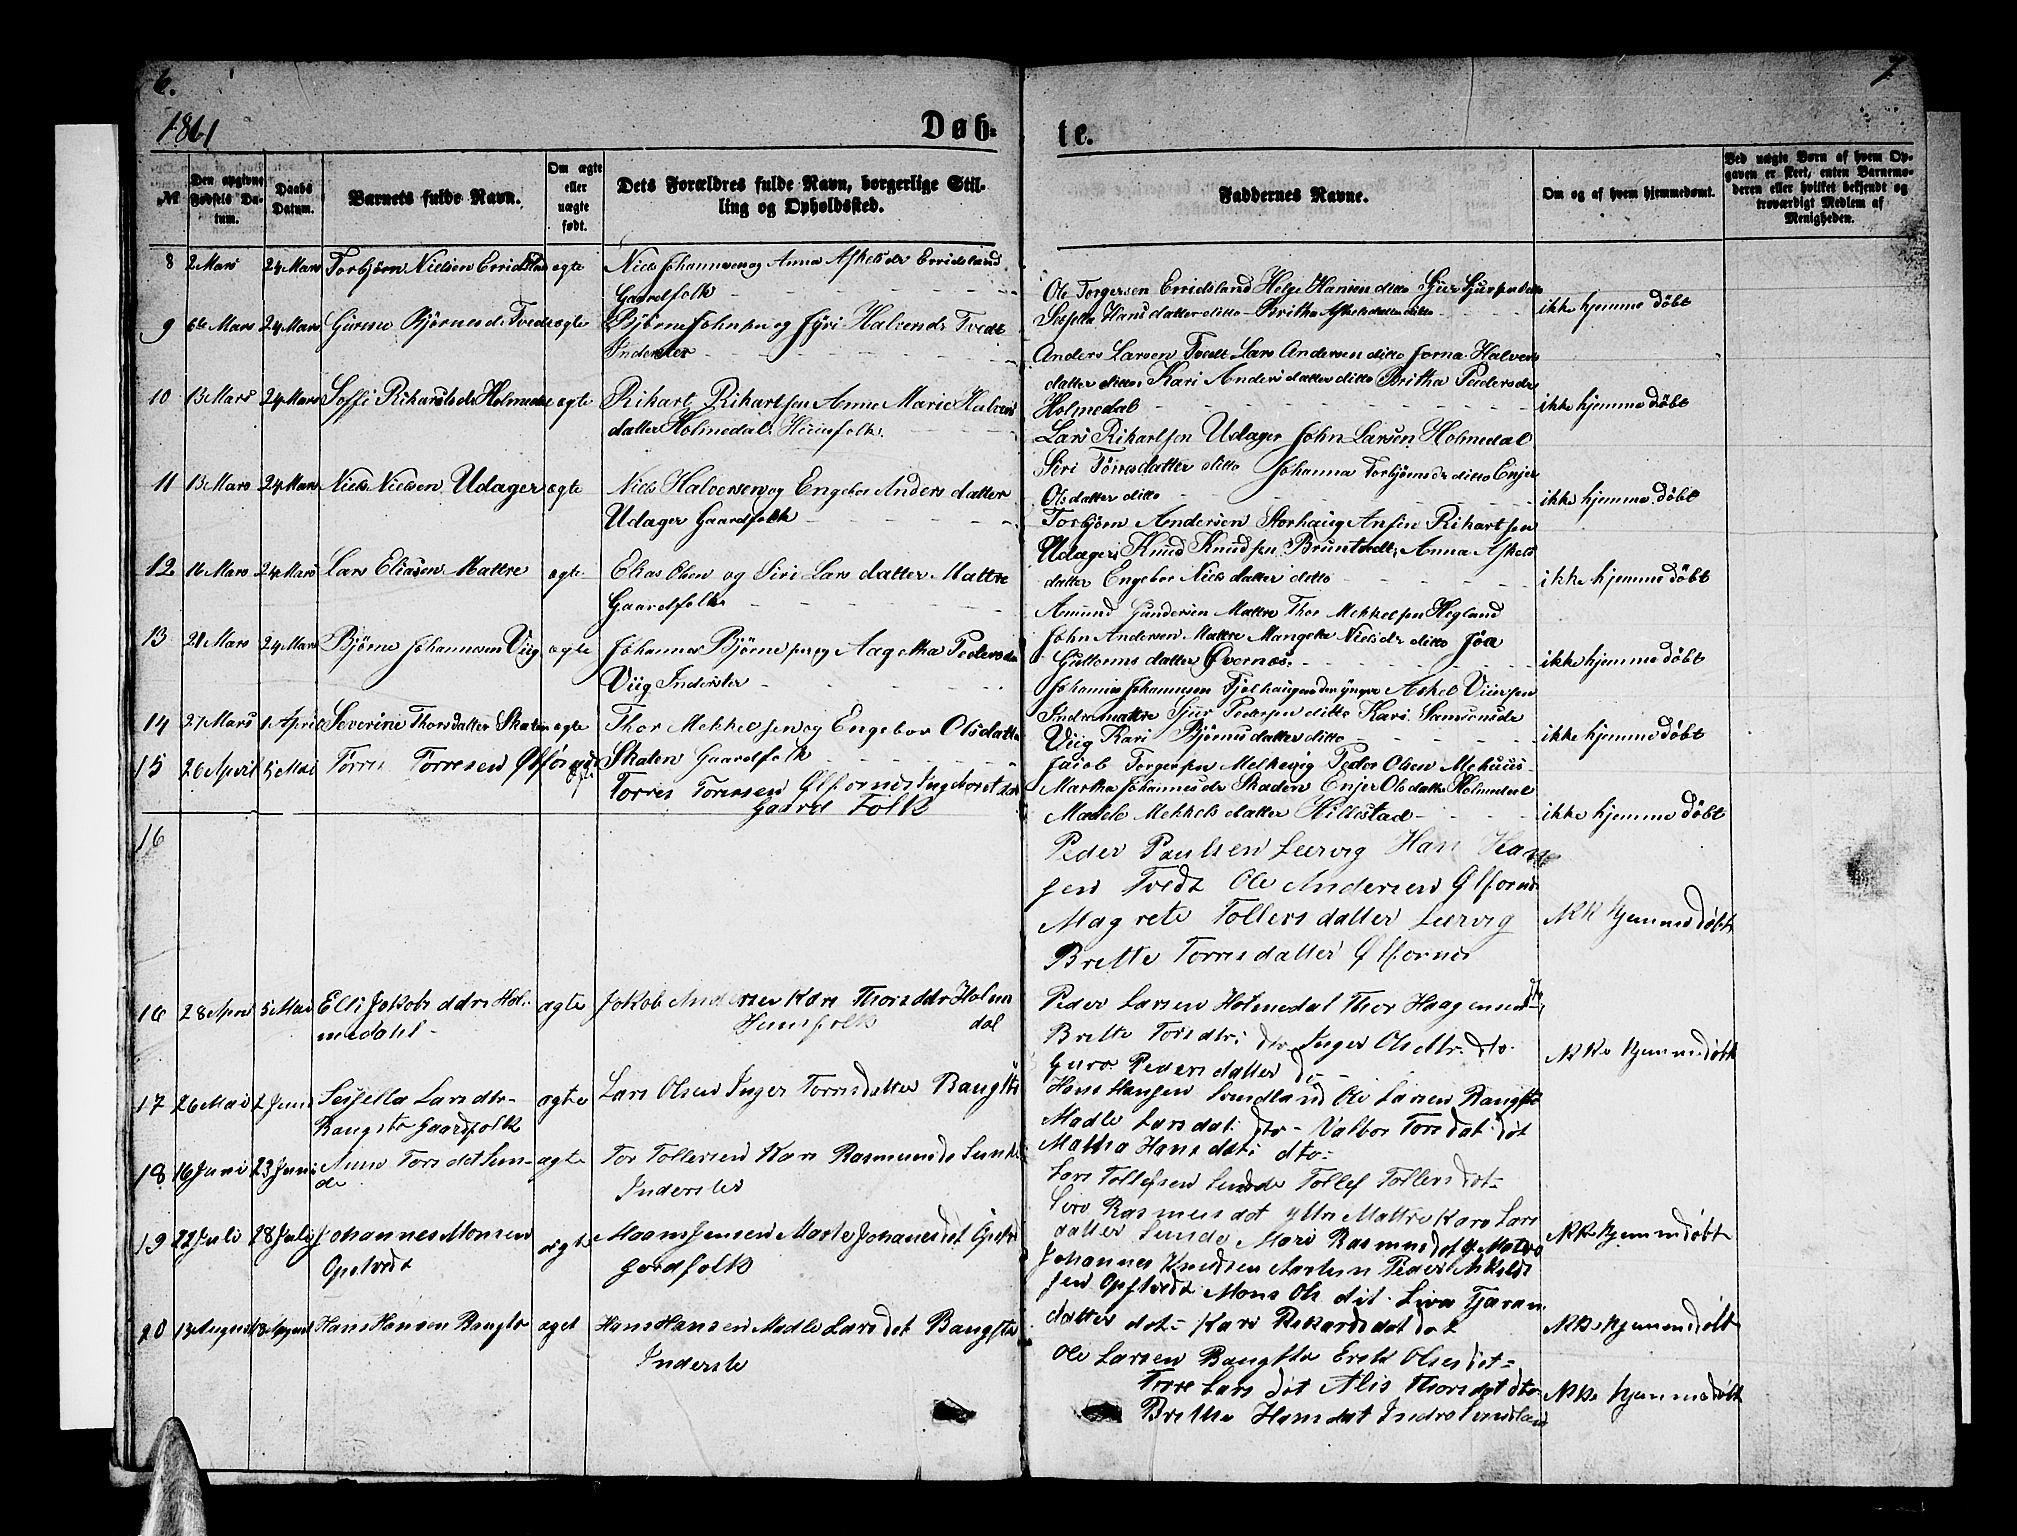 6.
7
1861
Døb-
te.
№
Den opgivne Fødsels Datum.
Daabs Datum.
Barnets fulde Navn.
Om ægte eller uægte født.
Dets Forældres fulde Navn, borgerlige Stilling og Opholdssted.
Faddernes Navne.
Om og af hvem hjemmedøbt.
Ved uægte Børn af hvem Opgaven er skeet, enten Barnemoderen eller hvilket bekjendt og troværdigt Medlem af Menigheden.
8 2 Mars 24 Mars Torbjørn Nielsen Erridsland ægte Niels Johannesen og Anna Askelsdr Erridsland
Gaardfolk
Ole Torgersen Erridsland Helge Hansen ditto Sjur Sjursen ditto
Sessella Hansdatter ditto Britha Askelsdatter ditto
ikke hjemme døbt
9 6te Mars 24 Mars Bjørnesdr Tvedt ægte Bjørne Johnsen og Halvensdr Tvedt
Inderster
Anders Larsen Tvedt Lars Andersen ditto Halvers
datter ditto Kari Andersdatter ditto Britha Pedersdr
Holmedal
ikke hjemme døbt
10 13 Mars 24 Mars Soffi Rikartsdr Holmedal ægte Rikart Rikartsen Anne Marie Halvers
datter Holmedal Huusfolk
Lars Rikartsen Udager John Larsen Holmedal
Siri Tørresdatter ditto Johanna Torbjørnsdr ditto Enjer
Olsdatter ditto
ikke hjemme døbt
11 13 Mars 24 Mars Niels Nielsen Udager ægte Niels Halversen og Engebor Andersdatter
Udager Gaardfolk
Torbjørn Andersen Storhaug Ansin Rikartsen
Udager Knud Knudsen Bruntvedt Anna Askels
datter Engebor Nielsdatter ditto
ikke hjemme døbt
12 16 Mars 24 Mars Lars Eliasen Mattre ægte Elias Olsen og Siri Larsdatter Mattre
Gaardfolk
Amund Gundersen Mattre Thor Mekkelsen Hegland
John Andersen Mattre Mangela Nielsdr ditto
Guttormsdatter Øvernæs
ikke hjemme døbt
13 21 Mars 24 Mars Bjørne Johannesen Viig ægte Johannes Bjørnesen og Aagetha Pedersdr
Viig Inderster
Johannes Johannesen Fjelhaugen den yngre Askel
Indremattre Sjur Pedersen ditto Kari Samsonsdr
Viig Kari Bjørnsdatter ditto
ikke hjemme døbt
14 27 Mars 1 April Severine Thorsdatter Skaten ægte Thor Mekkelsen og Engebor Olsdatter
Skaten Gaardfolk
Jacob Torgersen Melkevig Peder Olsen Mehuus
Martha Johannesdr Skaden Enjer Olsdatter Holmedal
Madele Mekkelsdatter Hillestad
ikke hjemme døbt
15 26 April 5 Mai Torris Torresen Ølfornes ægte Torres Torresen Ølfornes Ingeboret
Gaard Folk
16
Peder Paulsen Lervig Hans Han
sen Tvedt Ole Andersen Ølfornes
Magrete Tollersdatter Lervig
Britte Torresdatter Ølfornes
Ikke hjemmedøbt
16 28 April 5 Mai Elli Jokobsddr Hol-
medahl
ægte Jokob Andersen Kari Thorsddr Holme
dal
Huusfolk
Peder Larsen Holmedal Thor Haagensen
Britte Torsdtr dto Inger Olsdtr dto
Guro Pedersdatter do
Ikke hjemmedøbt
17 26 Mai 2 Juni Sessella Larsdtr
Bangsto Gaardfolk
ægte Lars Olsen Inger Torresdatter Bangsto
Hans Hansen Sundland Ole Larsen Bangsto
Madle Larsdat dto Valbor Torsdat dot
Matha Hansdat dto
18 16 Juni 23 Juni Torsdat Sun-
de
ægte Tor Tollefsen Kari Rasmundsd Sunde
Inderster
Lars Tollefsen Sunde Tollef Tollersdat
Siro Rasmusdat ytre Mattre Kari Lars
datter Sunde Mari Rasmusdat y Matre
Ikke hjemmedøbt
19 22 Juli 28 Juli Johannes Monsen
Opstvedt
ægte Jensen Marte Johanesdet
gordfolk
Johannes Knudsen Peder Askilds
sen Opstvedt Mons Ols dit Siva Tjaran
datter dot Kari Rikardsdat dot
Ikke hjemmedøbt
20 13 August 18 August Hans Hansen Bangto æget Hans Hansen Madle Larsdet Bangsto
Inderste
Ole Larsen Bangsto Erek Olsen dot
Torre Larsdot Alis Thorsdat dto
Brithe Hansdat Indre Sundland
Ikke hjemmedøbt